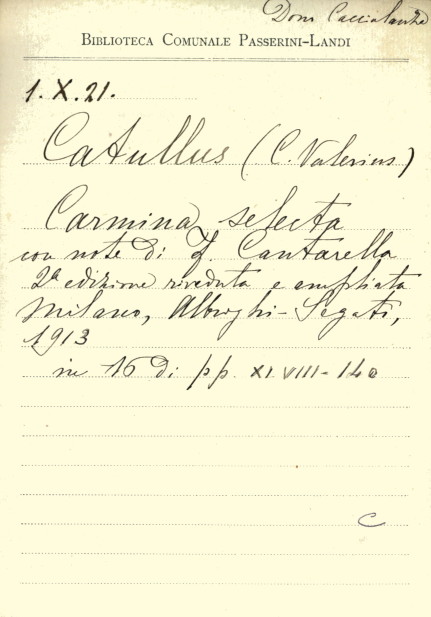 Dono Caccialanza
BIBLIOTECA COMUNALE PASSERINI-LANDI
1. X. 21.
Catullus (C. Valerius)
Carmina selecta
con note di F. Cantarella
2ª edizione riveduta e ampliata
Milano, Albrighi-Segati,
1913
in 16 di pp. XLVIII-140
C